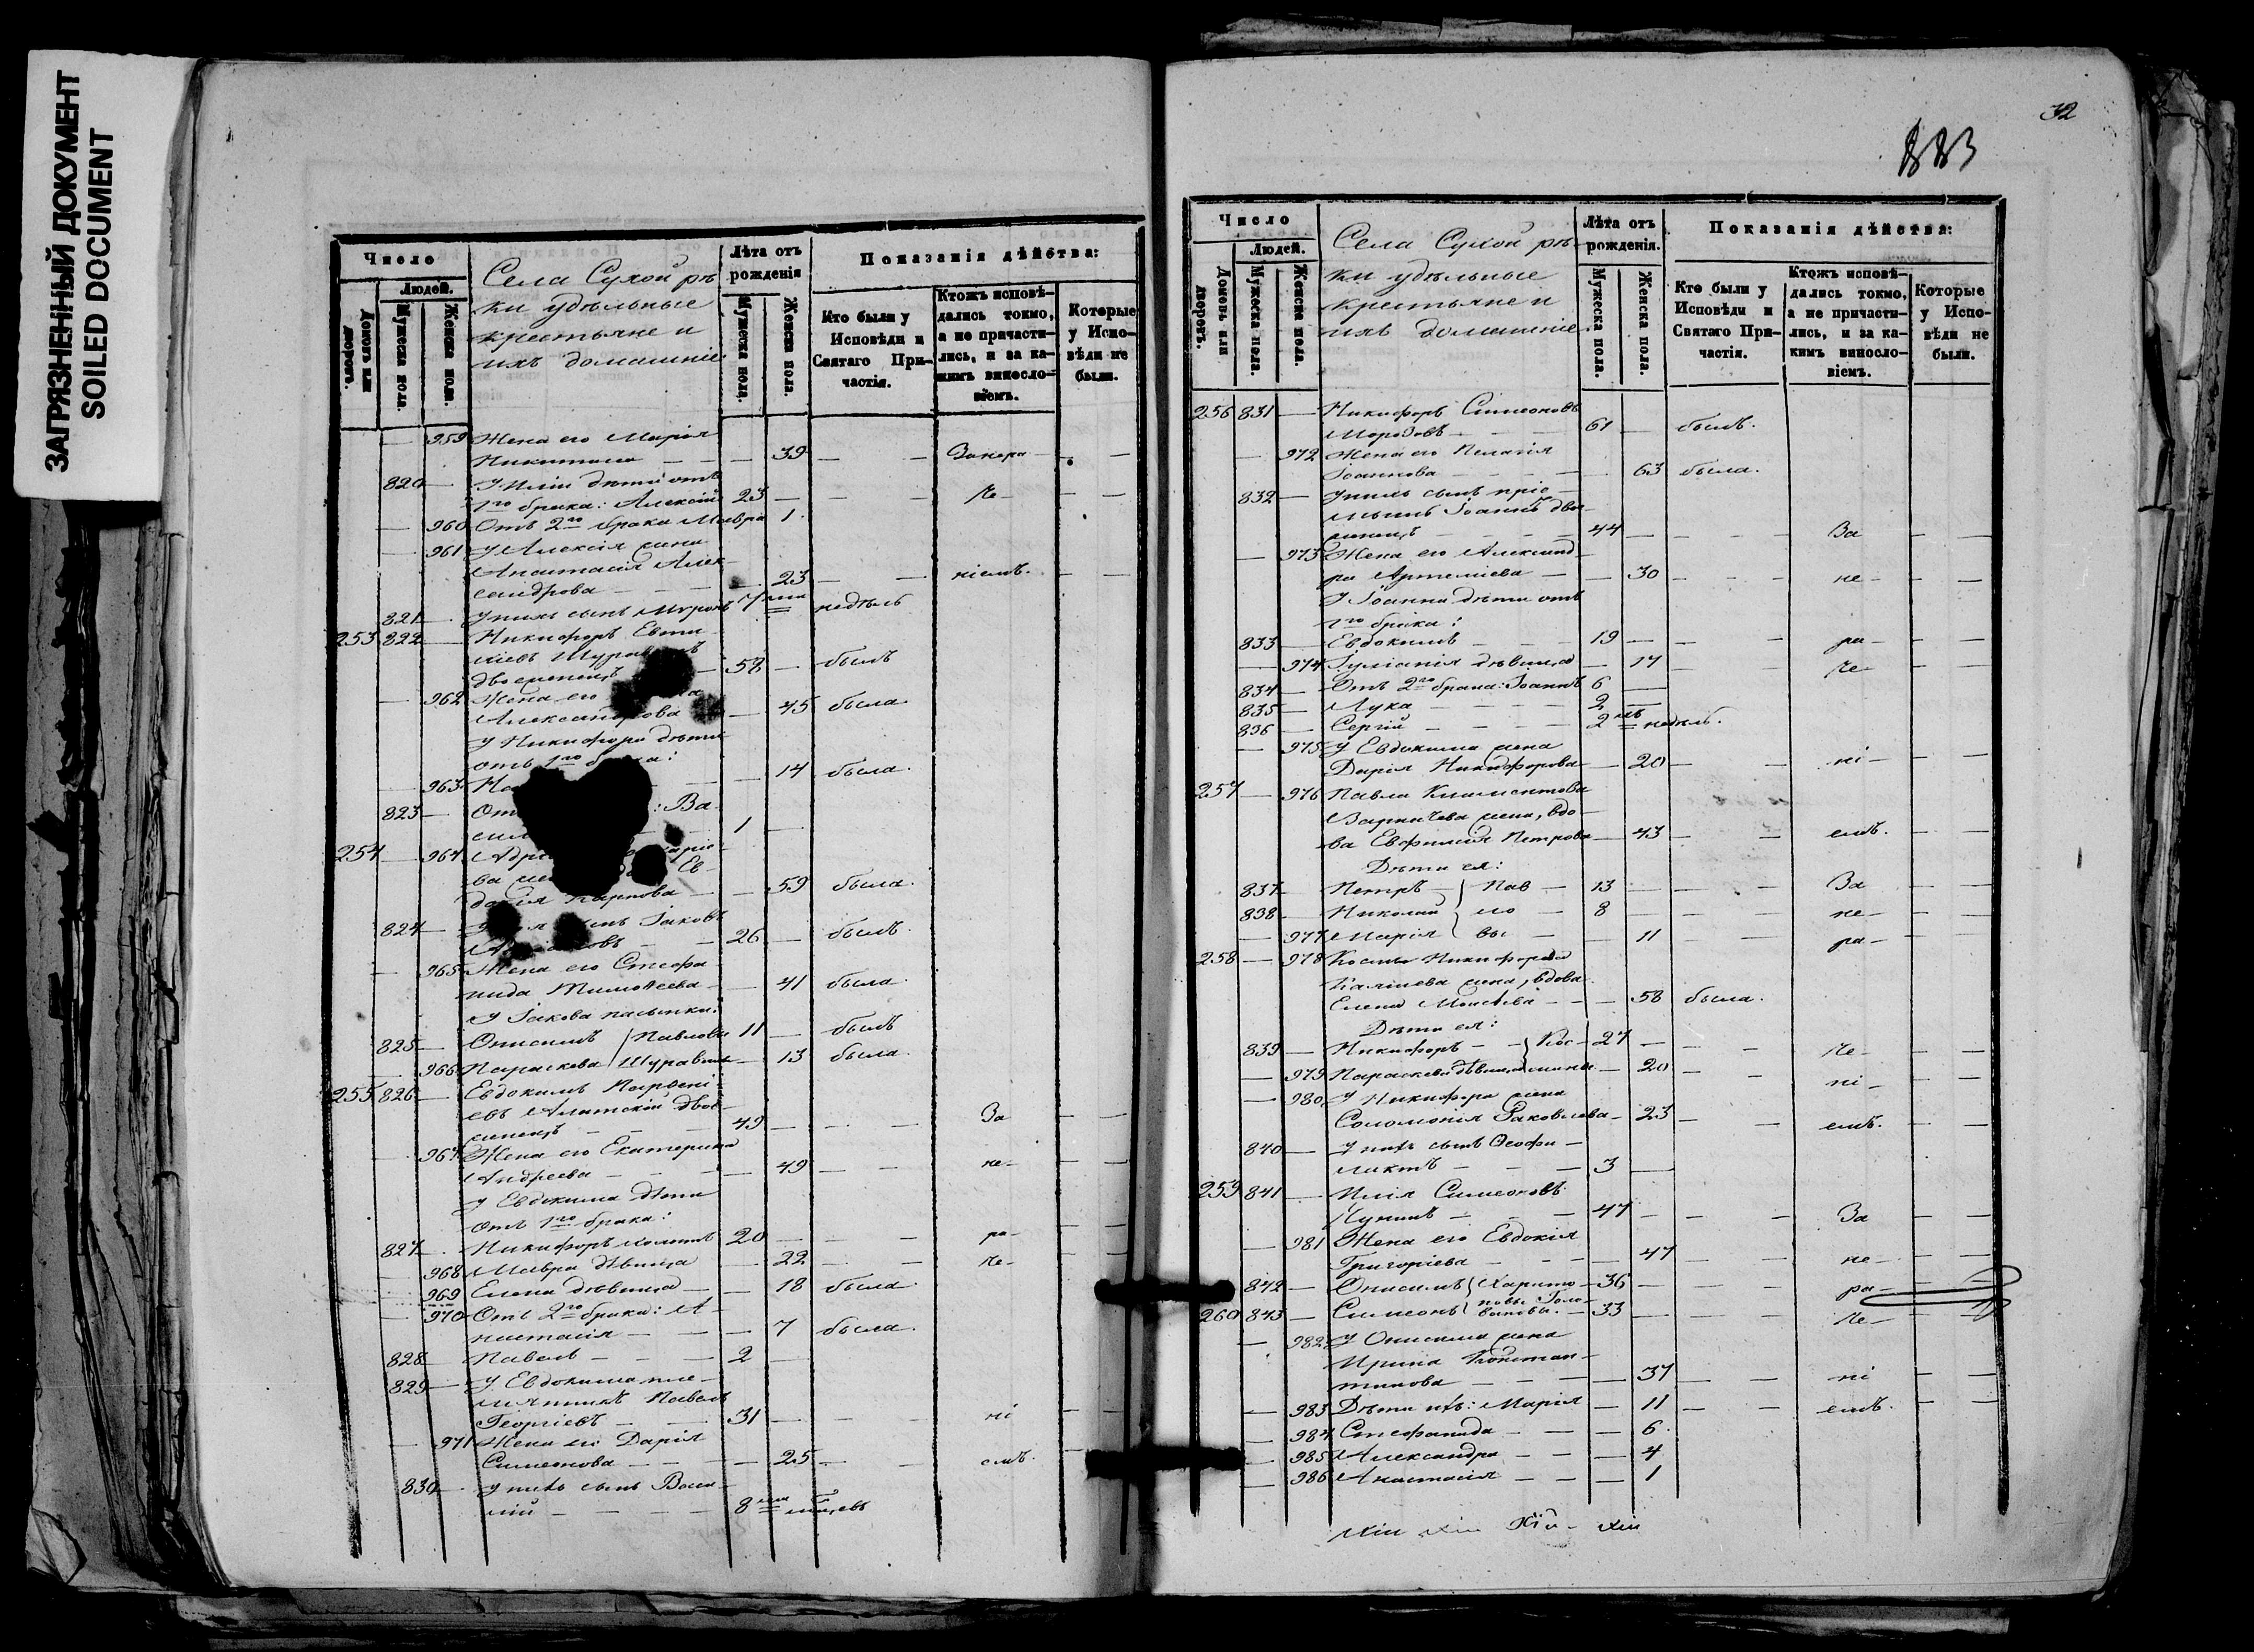 ЗАГРЯЗНЕННЫЙ ДОКУМЕНТ
SOILED DOCUMENT
Число
Людей.
Домовъ или дворовъ.
Мужеска пола.
Женска пола.
Села Сухой рѣ-
ки удѣльные
крестьяне и
ихъ домашніе
Лѣта отъ рожденія
Мужеска пола.
Женска пола.
Показанія дѣйства:
Кто были у Исповѣди и Святаго При-частія.
Ктожъ исповѣ-дались токмо, а не причасти-лись, и за ка-кимъ винносло-віемъ.
Которые у Испо-вѣди не были.
959 Жена его Марія
Никитина — — — 39 — — —
820 — У Иліи дѣти отъ
1го брака: Алексій 23 — — — че — —
— 960 Отъ 2го брака Мавра 1
— 961 У Алексія жена
Анастасія Алек-
сандрова — — 23 — — ніемъ. — —
821 — У нихъ сынъ Миронъ 7ми недѣль
253 822 — Никифоръ Евти-
хіевъ
двоеженецъ — 58 — былъ
— 962 Жена его
Александрова — 45 была
У Никифора дѣти
отъ 1го брака:
963 — — 14 была.
823 — От : Ва-
сил 1 —
254 — 964
ва Ев-
докія Карпова — — 59 была.
824 — сынъ Іаковъ
— 26 — былъ.
— 965 Жена его Стефа-
нида Тимоѳеева — — 41 была.
У Іакова пасынки:
825 — Онисимъ Павловы 11 — былъ
— 966 Параскева — 13 была.
255 826 — Евдокимъ Парѳені-
евъ двое-
женецъ — — 49 — — — За — —
— 967 Жена его Екатерина
Андреева — — — 49 — — не — —
У Евдокима дѣти
отъ 1го брака:
827 — Никифоръ холостъ 20 — — — ра — —
— 968 Мавра дѣвица — 22 — — че —
— 969 Елена дѣвица — — 18 была
— 970 Отъ 2го брака: А-
настасія — — — 7 была.
828 — Павелъ — — — 2 —
829 — У Евдокима пле-
мянникъ Павелъ
Георгіевъ — — 31 — — — ні — —
— 971 Жена его Дарія
Симеонова — — — 25 — — емъ. —
830 — У нихъ сынъ Васи-
лій — — — — 8ми мѣсяцевъ
32
883
Число
Людей.
Домовъ или дворовъ.
Мужеска пола.
Женска пола.
Села Сухой рѣ-
ки удѣльные
крестьяне и
ихъ домашніе
Лѣта отъ рожденія.
Мужеска пола.
Женска пола.
Показанія дѣйства:
Кто были у Исповѣди и Святаго При-частія.
Ктожъ исповѣ-дались токмо, а не причасти-лись, и за ка-кимъ винносло-віемъ.
Которые у Испо-вѣди не были.
256 831 — Никифоръ Симеоновъ
Морозовъ — — — 61 — былъ.
— 972 Жена его Пелагія
Іоаннова — — — — 63 была.
832 — У нихъ сынъ пріе-
мышъ Іоаннъ двое-
женецъ — — — 44 — — — За — —
— 973 Жена его Александ-
ра Артеміева — — 30 — — — не — —
У Іоанна дѣти отъ
1го брака:
833 — Евдокимъ — — 19 — — — ра — —
— 974 Іуліанія дѣвица — 17 — — че — —
834 — Отъ 2го брака: Іоаннъ 6 —
835 — Лука — — — — 2 —
836 — Сергій — — — — 2хъ недѣль.
— 975 У Евдокима жена
Дарія Никифорова — 20 — — ні — —
257 — 976 Павла Климентова
жена, вдо-
ва Евфимія Петрова — 43 — — емъ. — —
Дѣти ея:
837 — Петръ — Пав — 13 — — — За — —
838 — Николай ло — 8 — — — не — —
— 977 Марія вы — — 11 — — ра — —
258 — 978 Косьмы Никифорова
жена, вдова
Елена Моисеева — — — 58 была.
Дѣти ея:
839 — Никифоръ — — Кос — 27 — — — че — —
— 979 Параскева дѣвица мины — 20 — — ні — —
— 980 У Никифора жена
Соломонія Іаковлева — 23 — — емъ. — —
840 — У нихъ сынъ Ѳеофи-
лактъ — — — 3 —
259 841 — Илія Симеоновъ
— — — 47 — — — За — —
— 981 Жена его Евдокія
Григоріева — — — — 47 — — не — —
842 — Онисимъ Харито — 36 — — — ра —
260 843 — Симеонъ новы Голо-
вановы. — 33 — — — че —
— 982 У Онисима жена
Ирина Констан-
тинова — — — — 37 — — ні — —
— 983 Дѣти ихъ: Марія — 11 — — емъ. — —
— 984 Стефанида — — — 6.
— 985 Александра — — — 4
— 986 Анастасія — — — 1